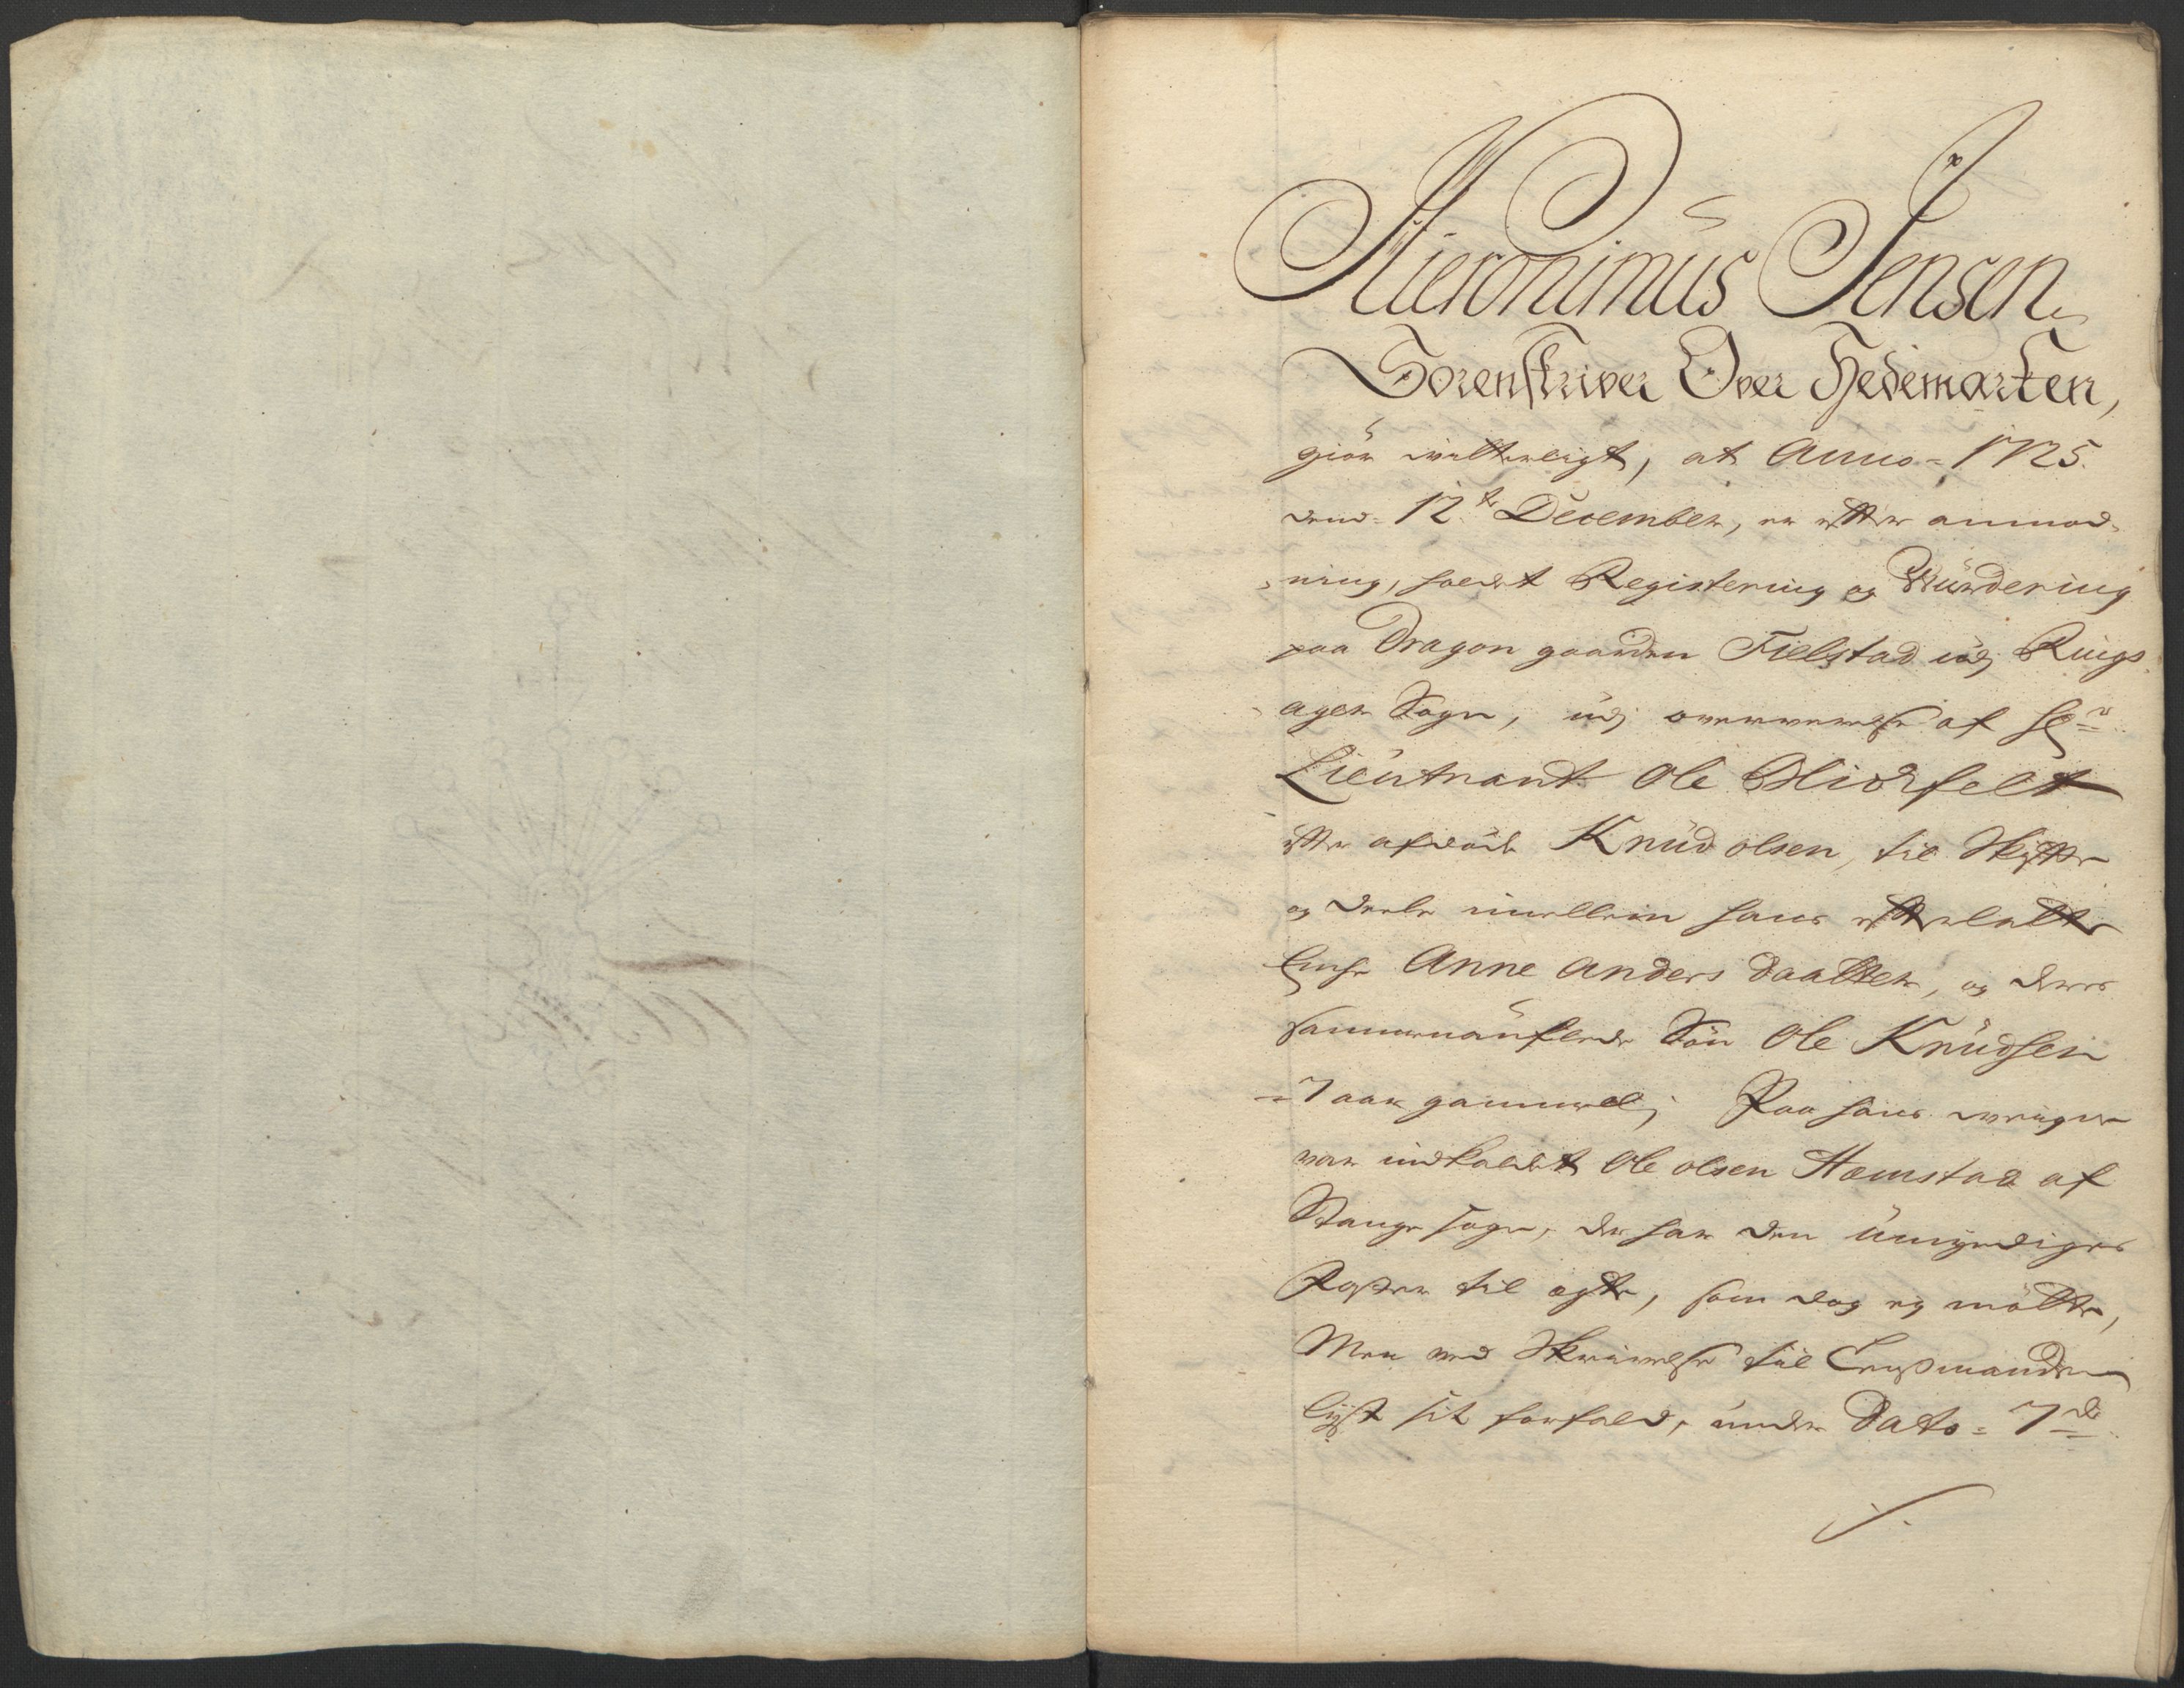 Hieronimus Jensen
Sorenskriver Over Hedemarken,
giör witterligt, at Anno = 1725.
dend= 12.te December, er efter anmod-
ning, holdt Registering og Wurdering
paa Dragon gaarden Fielstad udj Rings-
ager Sogn, udj overværelse af Hr
Lieutnant Ole Hiorfelt
efter afdöde Knud olsen, til Skifte
og deele imellem hans efterlatte
Enche Anne Anders daatter, og deres
sammenauflede Sön Ole Knudsen
= 7 aar gammel; Paa hans weigne
var indkaldet Ole olsen Hæmstad af
Stange sogn, der har den umyndiges
Faster til egte, som dog ej mötte,
Men ved Skrivelse til Lensmanden
lyst sit forfald, under Dato = 7de